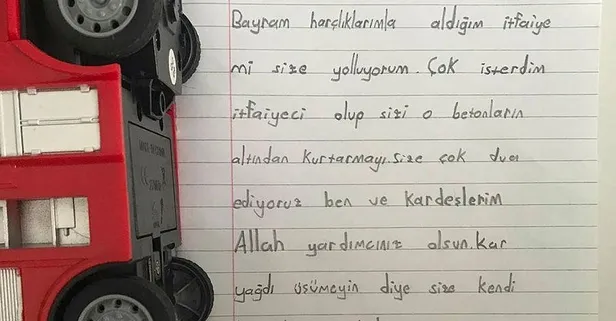 Bayram harçlıklarımla aldığım itfaiye
mi size yolluyorum. Çok isterdim
itfaiyeci olup sizi o betonların
altından kurtarmayı. Size çok dua
ediyoruz ben ve kardeşlerim
Allah yardımcınız olsun. Kar
yağdı üşümeyin diye size kendi